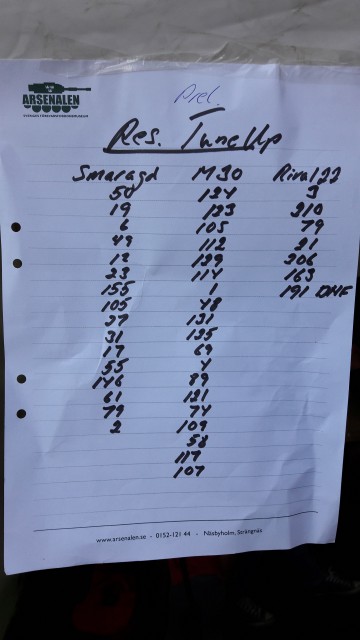 ARSENALEN
SVERIGES FÖRSVARSFORDONSMUSEUM
Prel.
Res. TuneUp
Smaragd M30 Rival 22
50 124 3
19 123 210
6 105 79
49 112 21
12 129 206
23 114 163
155 1 191 DNF
105 48
27 131
31 135
17 69
55 4
146 99
61 121
79 74
2 109
58
117
107
www.arsenalen.se - 0152-121 44 - Näsbyholm, Strängnäs